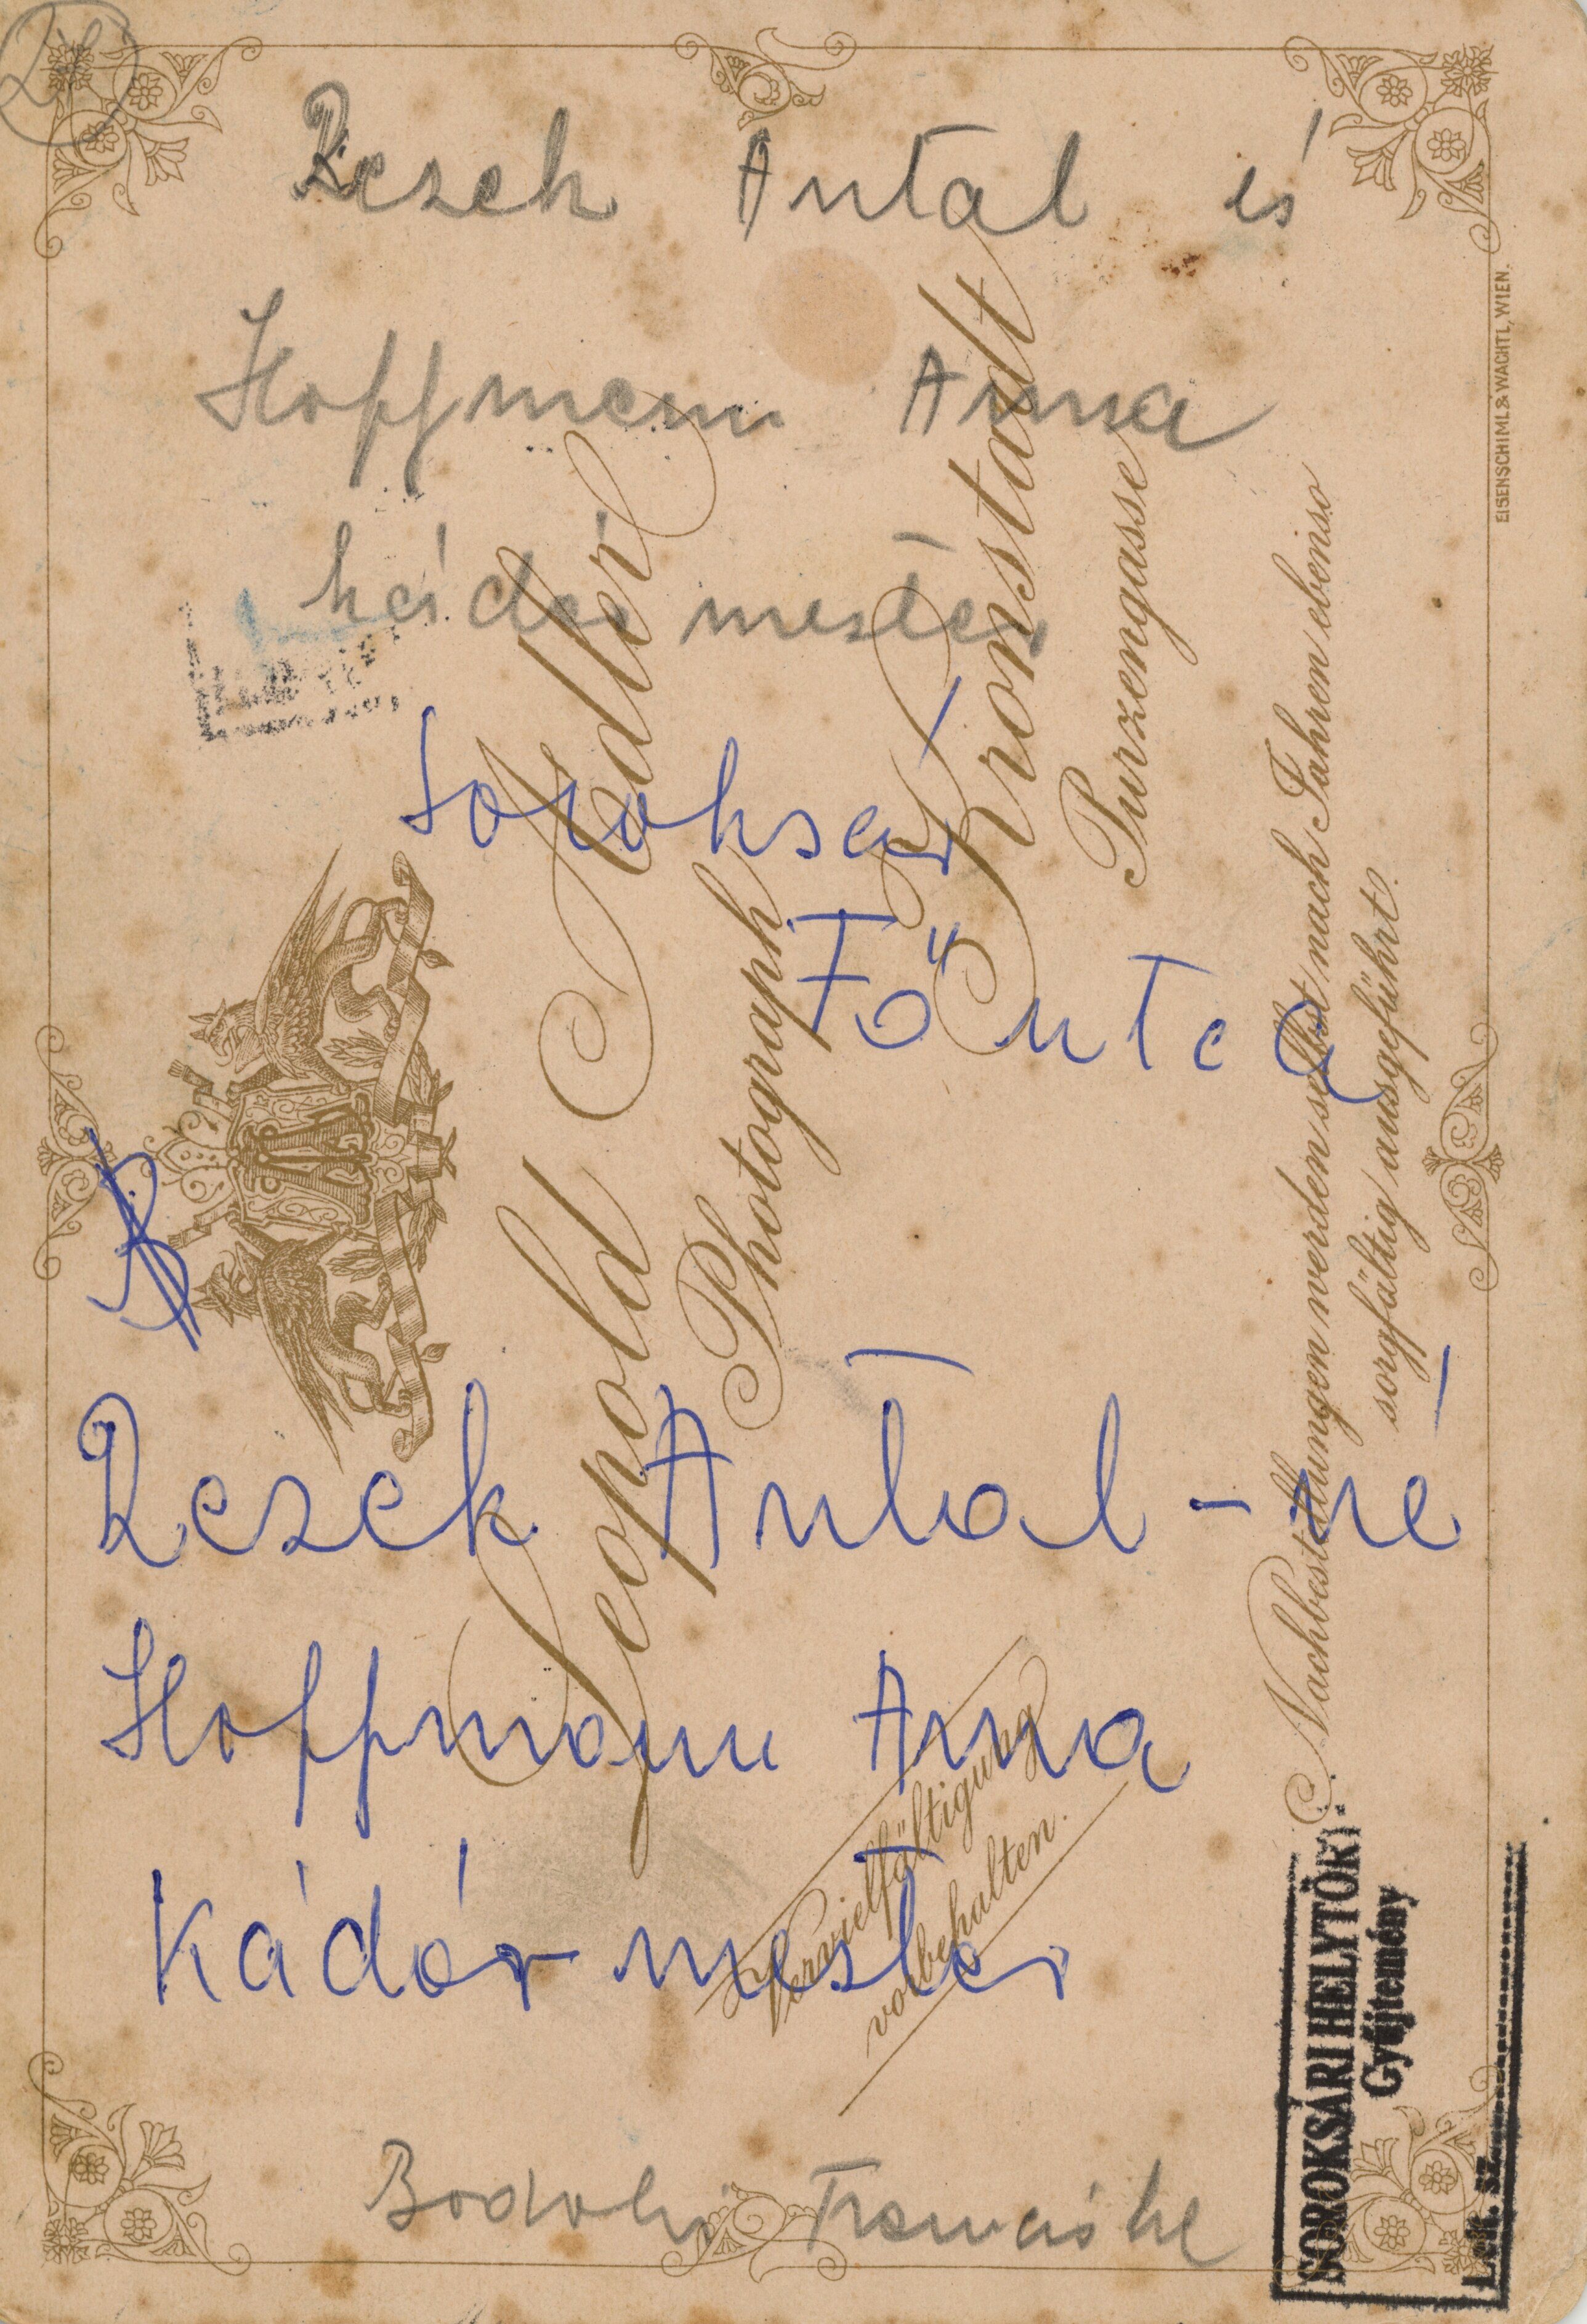 Rezek Antal és
Hoffmann Anna
kádár mester
Soroksár
Fő utca
Rezek Antal-né
Hoffmann Anna
Kádár mester
Leopold Adler
Photograph
Kronstadt
Purzengasse
Nachbestellungen werden selbst nach Jahren ebenso
sorgfältig ausgeführt.
Vervielfältigung
vorbehalten.
EISENSCHIML & WACHTL, WIEN.
SOROKSÁRI HELYTÖRT.
Gyűjtemény
Lelt. sz.